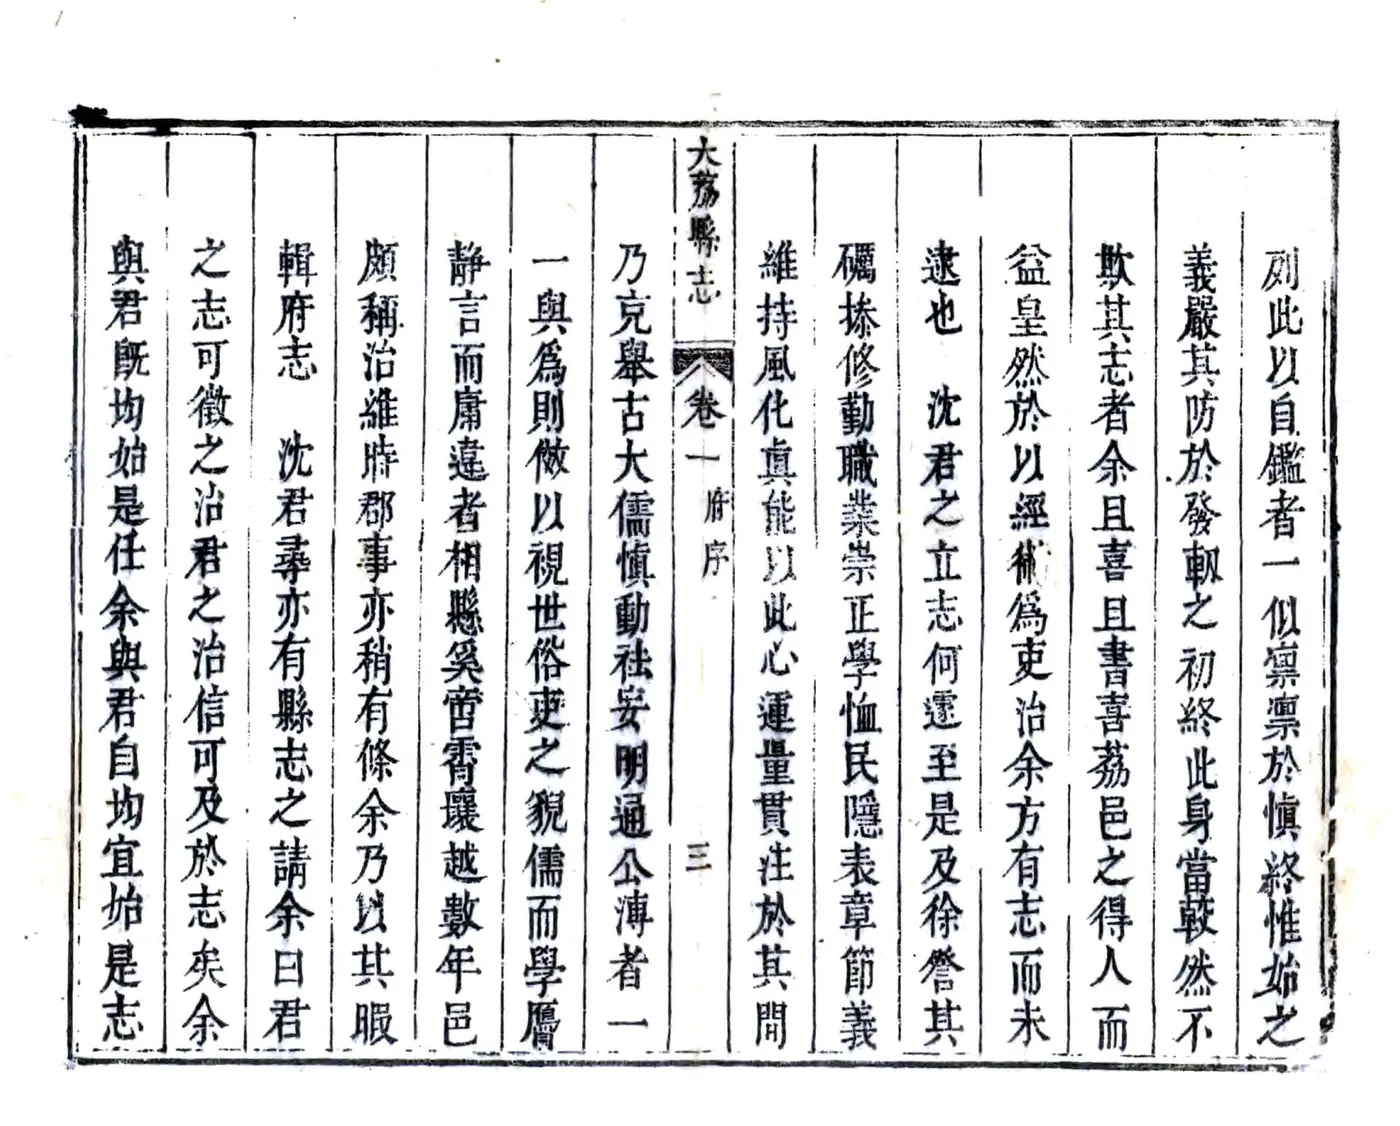 列此以自鑑者一似凛凛於慎終惟始之
義嚴其防於發軔之初終此身當較然不
欺其志者余且喜且書喜荔邑之得人而
益皇然於以經術為吏治余方有志而未
逮也　沈君之立志何遽至是及徐詧其
礪操修勤職業崇正學恤民隱表章節義
維持風化真能以此心運量貫注於其間
大荔縣志　卷一　府序　三
乃克舉古大儒慎動祛妄明通公溥者一
一與為則傚以視世俗吏之貌儒而學贗
静言而庸違者相縣奚啻霄壤越數年邑
頗稱治維時郡事亦稍有條余乃以其暇
輯府志　沈君尋亦有縣志之請余曰君
之志可徵之治君之治信可及於志矣余
與君既均始是任余與君自均宜始是志